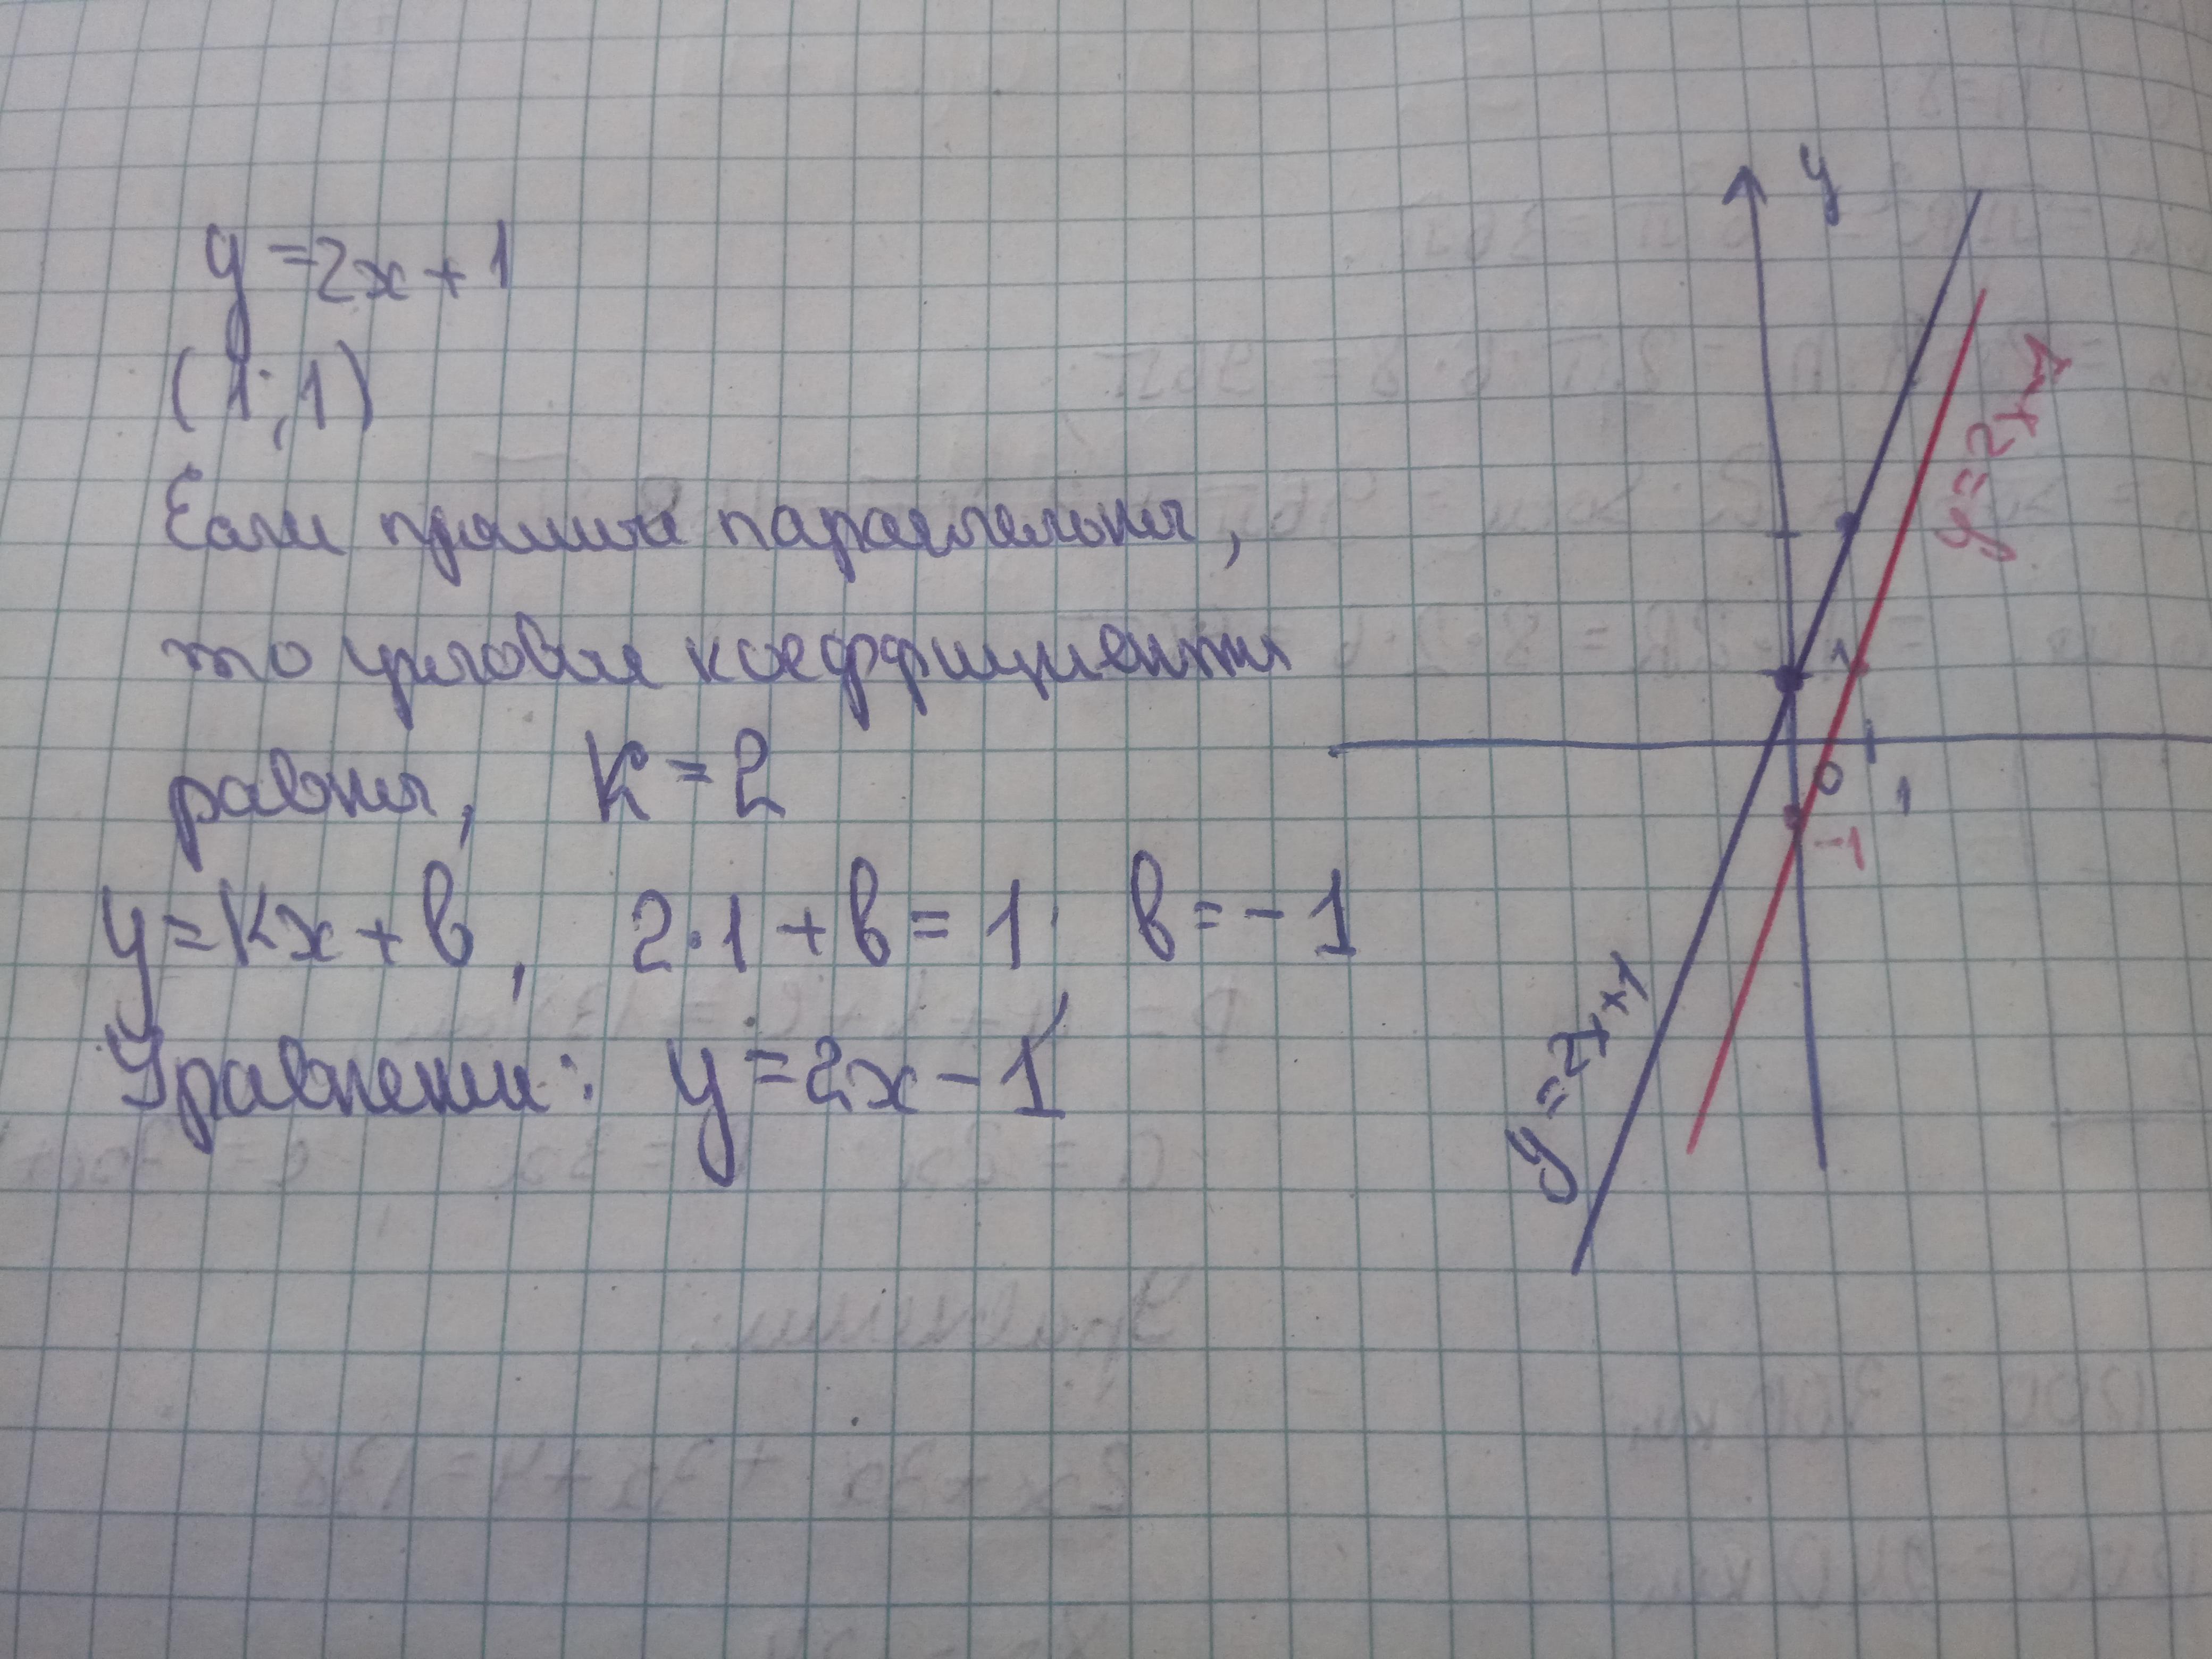 y = 2x + 1
(1; 1)
Если прямые параллельны,
то угловые коеффициенты
равны, K = 2
y = Kx + b, 2·1 + b = 1 b = -1
Уравнение: y = 2x - 1
y
y = 2x-1
1
0
1
-1
y = 2x+1